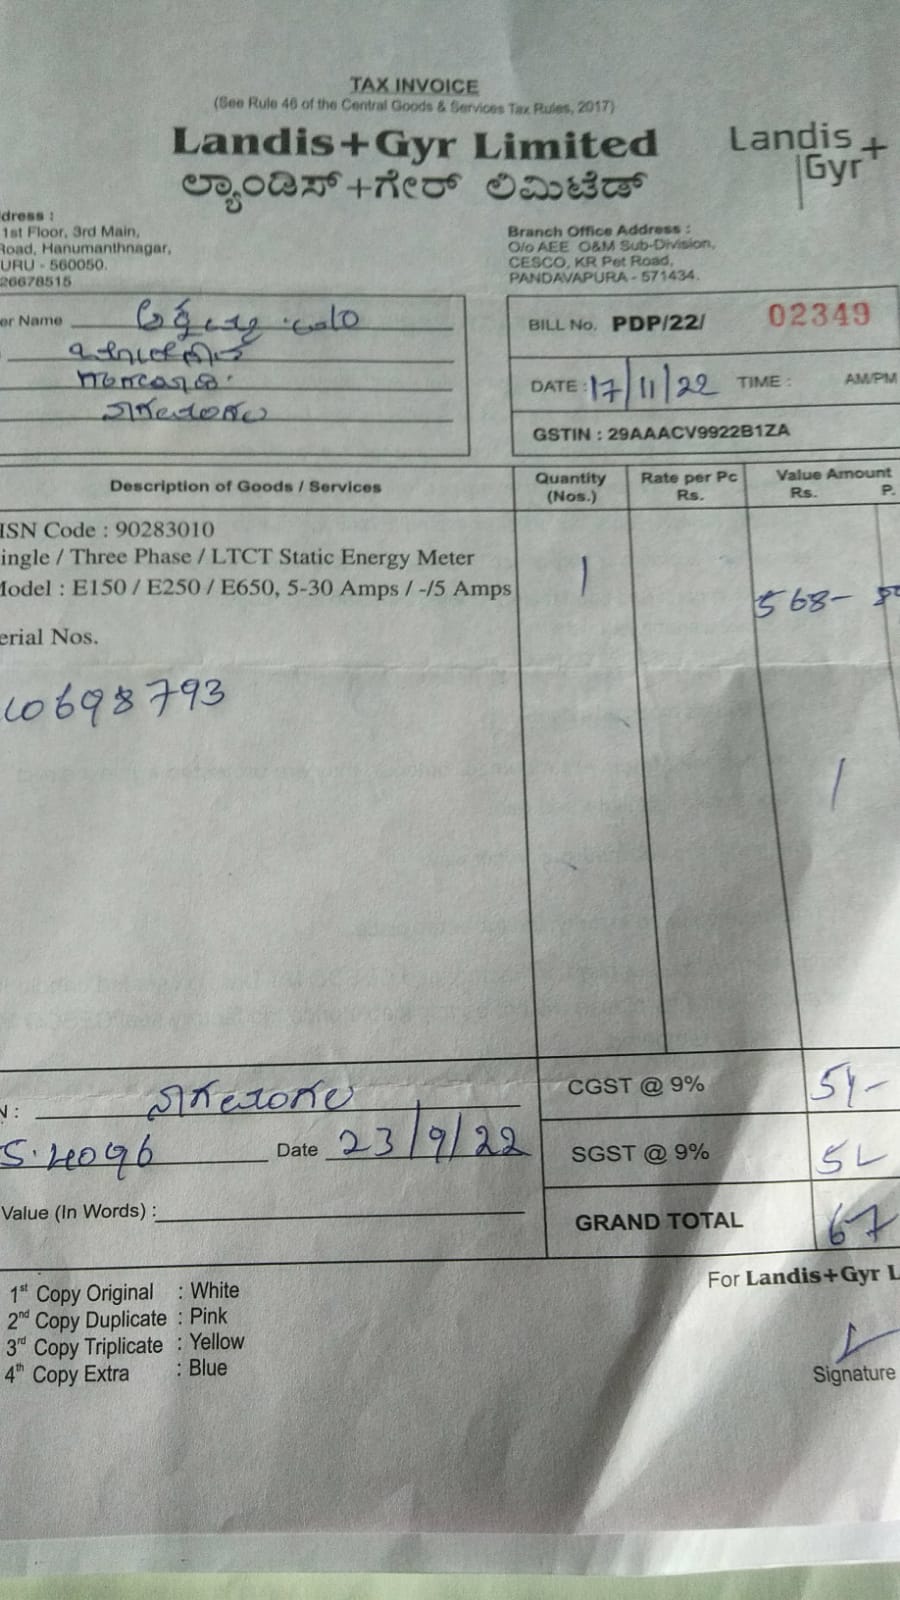 TAX INVOICE
(See Rule 46 of the Central Goods & Services Tax Rules, 2017)
Landis+Gyr Limited
ಲ್ಯಾಂಡಿಸ್+ಗೇರ್ ಲಿಮಿಟೆಡ್
Landis+
Gyr
dress :
1st Floor, 3rd Main,
Road, Hanumanthnagar,
URU - 560050.
26678515
Branch Office Address :
O/o AEE O&M Sub-Division,
CESCO, KR Pet Road,
PANDAVAPURA - 571434.
er Name
BILL No. PDP/22/ 02349
DATE : 17/11/22 TIME : AM/PM
GSTIN : 29AAACV9922B1ZA
Description of Goods / Services
Quantity (Nos.)
Rate per Pc Rs.
Value Amount Rs. P.
ISN Code : 90283010
ingle / Three Phase / LTCT Static Energy Meter
Model : E150 / E250 / E650, 5-30 Amps / -/5 Amps
1
568-
erial Nos.
10698793
N :
CGST @ 9% 51-
S. 4096 Date 23/9/22
SGST @ 9% 51
Value (In Words) :
GRAND TOTAL 67
1st Copy Original : White
2nd Copy Duplicate : Pink
3rd Copy Triplicate : Yellow
4th Copy Extra : Blue
For Landis+Gyr L
Signature